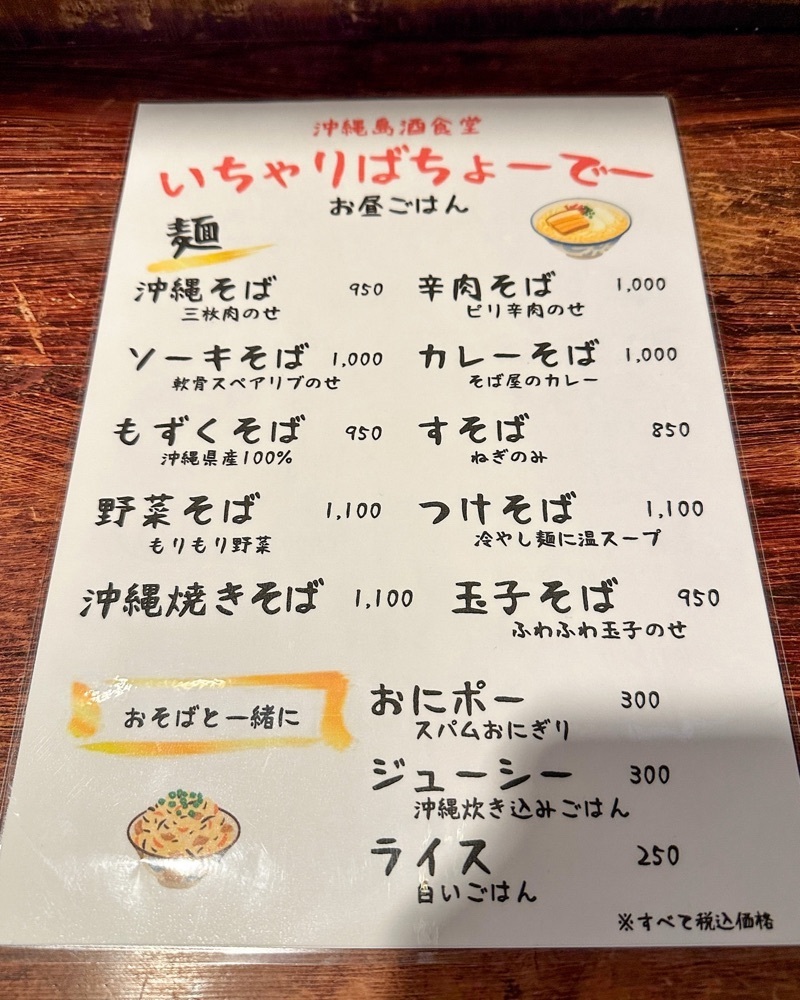 沖縄島酒食堂
いちゃりばちょーでー
お昼ごはん
麺
沖縄そば 950
三枚肉のせ
辛肉そば 1,000
ピリ辛肉のせ
ソーキそば 1,000
軟骨スペアリブのせ
カレーそば 1,000
そば屋のカレー
もずくそば 950
沖縄県産100%
すそば 850
ねぎのみ
野菜そば 1,100
もりもり野菜
つけそば 1,100
冷やし麺に温スープ
沖縄焼きそば 1,100
玉子そば 950
ふわふわ玉子のせ
おそばと一緒に
おにポー 300
スパムおにぎり
ジューシー 300
沖縄炊き込みごはん
ライス 250
白いごはん
※すべて税込価格